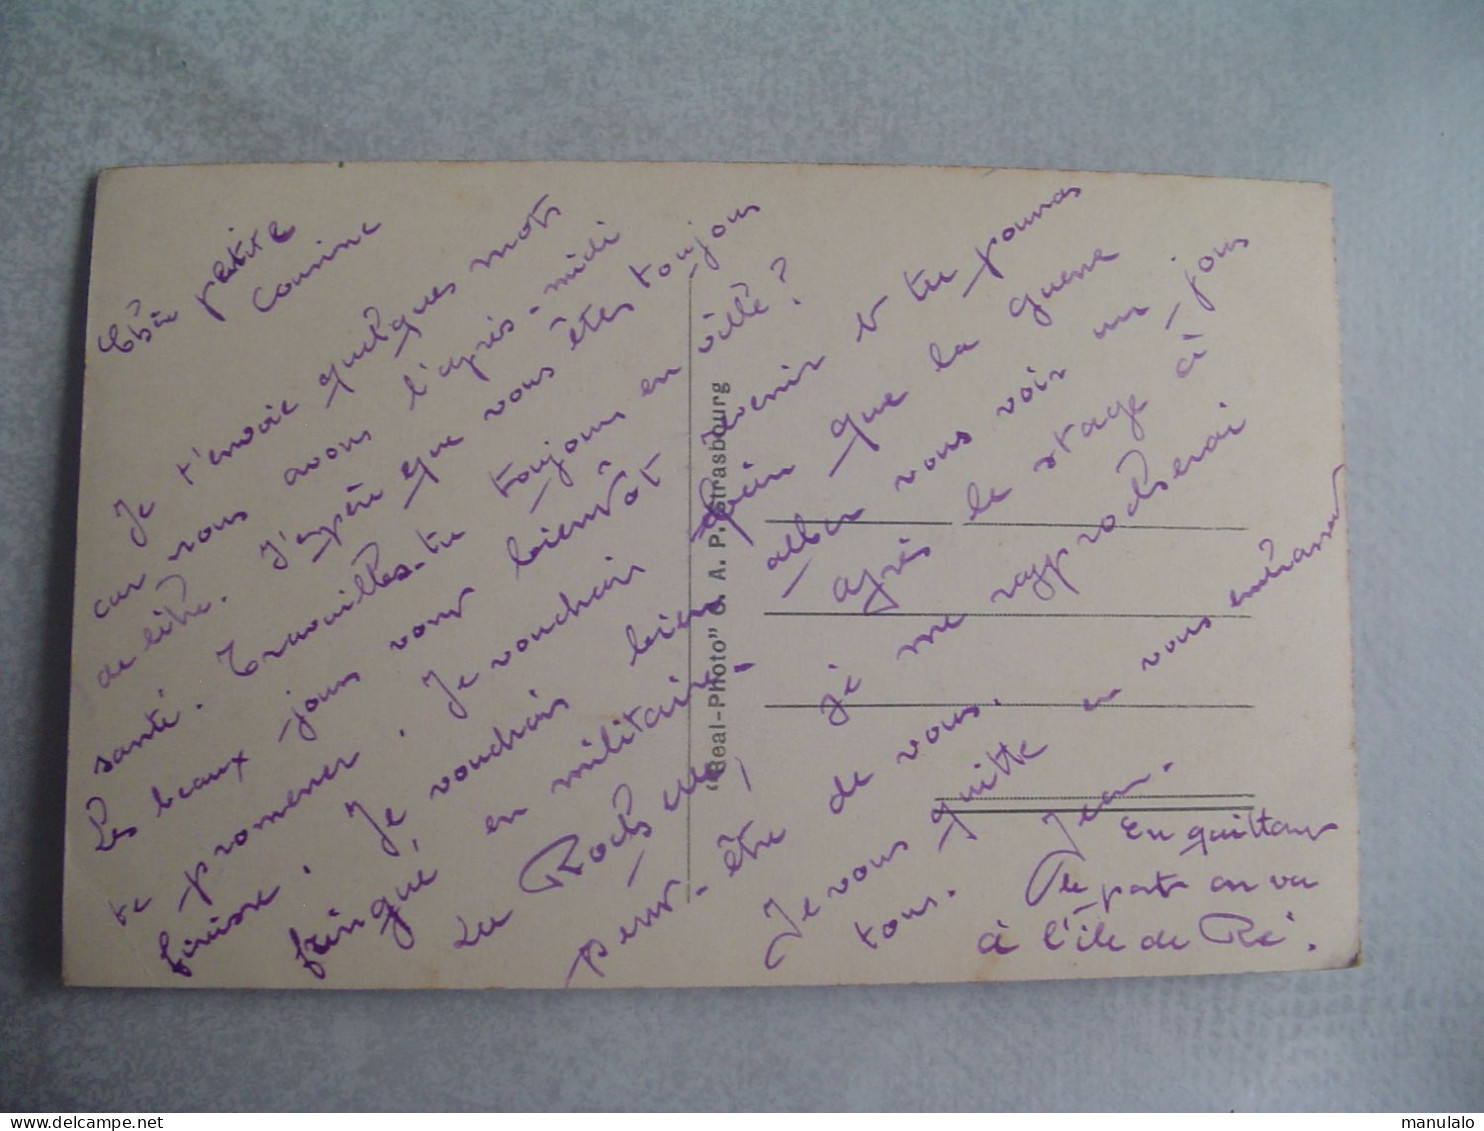 Chère petite
Cousine
Je t'envoie quelques mots
car nous avons l'après-midi
de libre. J'espère que vous êtes toujours
santé. Travailles-tu toujours en ville?
Les beaux jours vont bientôt revenir et tu pourras
te promener. Je voudrais bien que la guerre
finisse. Je voudrais bien aller vous voir un jour
fringué en militaire. Après le stage à
La Rochelle, je me rapprocherai
peut-être de vous.
Je vous quitte en vous embrassant
tous. Jean.
En quittant
le port on va
à l'île de Ré.
"Real-Photo" C. A. P. Strasbourg
www.delcampe.net
manulalo